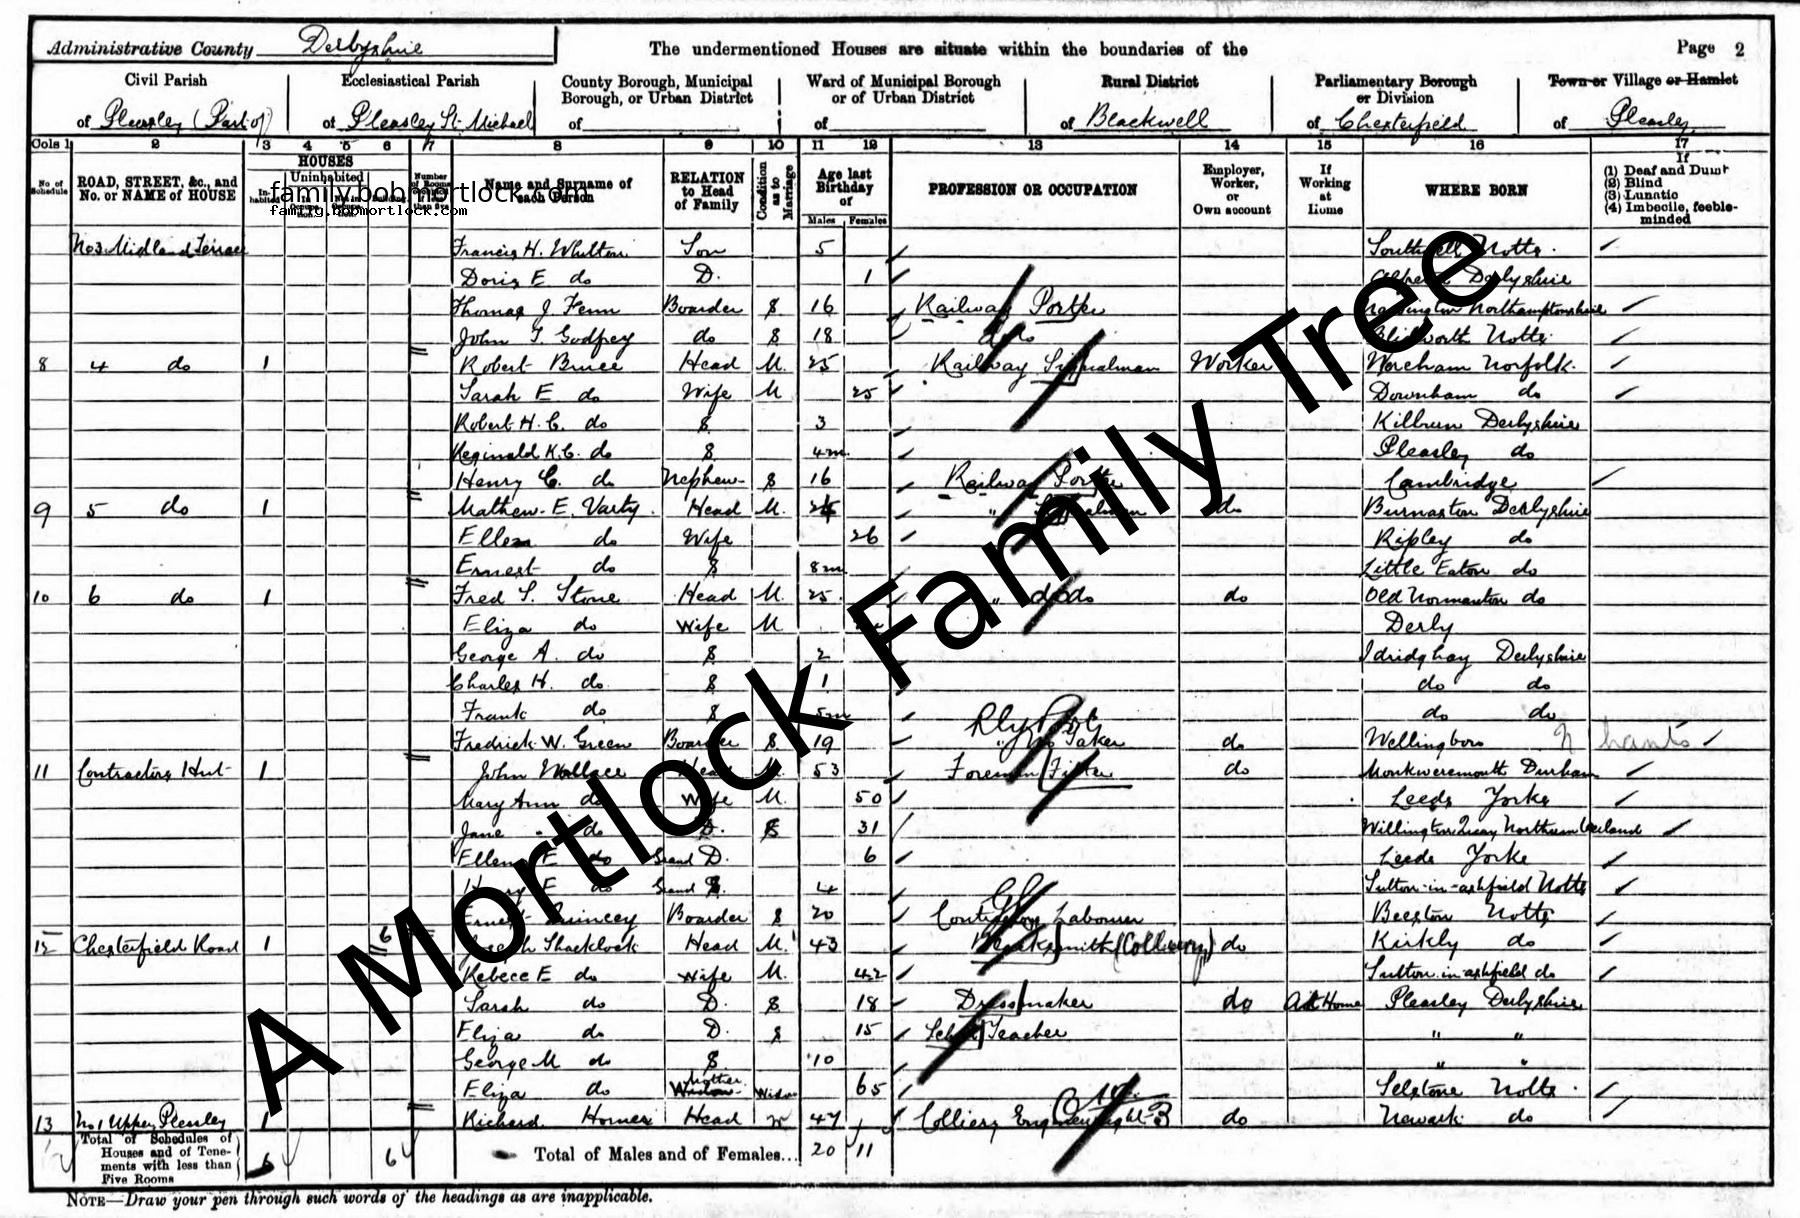 Administrative County Derbyshire The undermentioned Houses are situate within the boundaries of the Page 2
Civil Parish Ecclesiastical Parish County Borough, Municipal Borough, or Urban District Ward of Municipal Borough or of Urban District Rural District Parliamentary Borough or Division Town or Village or Hamlet
of Pleasley (Part of) of Pleasley St. Michael of of of Blackwell of Chesterfield of Pleasley
Cols 1 2 3 4 5 6 7 8 9 10 11 12 13 14 15 16 17
No of Schedule ROAD, STREET, &c., and No. or NAME of HOUSE HOUSES Inhabited Uninhabited Name and Surname of each Person RELATION to Head of Family Condition as to Marriage Age last Birthday of Males Females PROFESSION OR OCCUPATION Employer, Worker, or Own account If Working at Home WHERE BORN If (1) Deaf and Dumb (2) Blind (3) Lunatic (4) Imbecile, feeble-minded
family.bobmortlock.com
family.bobmortlock.com
No 3 Midland Terrace Francis H. Whitton Son 5 Southwell Notts.
Doris E do D. 1 Derbyshire
Thomas J. Fenn Boarder S 16 Railway Porter Northamptonshire
John T. Godfrey do S 18 do Blidworth Notts.
8 4 do 1 Robert Bruce Head M. 25 Railway Signalman Worker Wereham Norfolk.
Sarah E do Wife M 25 Downham do
Robert H. C. do S 3 Kilburn Derbyshire
Reginald K. C. do S 4m Pleasley do
Henry C. do Nephew S 16 Railway Porter Cambridge
9 5 do 1 Mathew. E. Varty. Head M. " Signalman do Burnaston Derbyshire
Ellen do Wife 26 Ripley do
Ernest do S 8m Little Eaton do
10 6 do 1 Fred S. Stone Head M. 25 " do do do Old Normanton do
Eliza do Wife M Derby
George A. do S 2 Idridghay Derbyshire
Charles H. do S 1 do do
Frank do S 5m do do
Fredrick W. Green Boarder S. 19 " No Taker do Wellingboro N hants
11 Contractors Hut 1 John Wallace Head M. 53 Foreman Fitter do Monkwearmouth Durham
Mary Ann do Wife M. 50 Leeds Yorks
Jane do D. S 31 Willington Quay Northumberland
Ellen E do Grand D. 6 Leeds Yorks
Henry E do Grand S. 4 Sutton-in-ashfield Notts
Ernest Quincey Boarder S 20 Contractors Labourer Beeston Notts
12 Chesterfield Road 1 6 Joseph Shacklock Head M. 43 Blacksmith (Colliery) do Kirkby do
Rebecc E do Wife M. 42 Sutton-in-ashfield do
Sarah do D. S 18 Dressmaker do At Home Pleasley Derbyshire
Eliza do D. S 15 School Teacher " "
George M do S. 10 " "
Eliza do Mother Widow 65 Selstone Notts.
13 No 1 Upper Pleasley 1 Richard Horner Head 47 Colliery do Newark do
Total of Schedules of Houses and of Tenements with less than Five Rooms 6 6 Total of Males and of Females... 20 11
NOTE—Draw your pen through such words of the headings as are inapplicable.
A Mortlock Family Tree